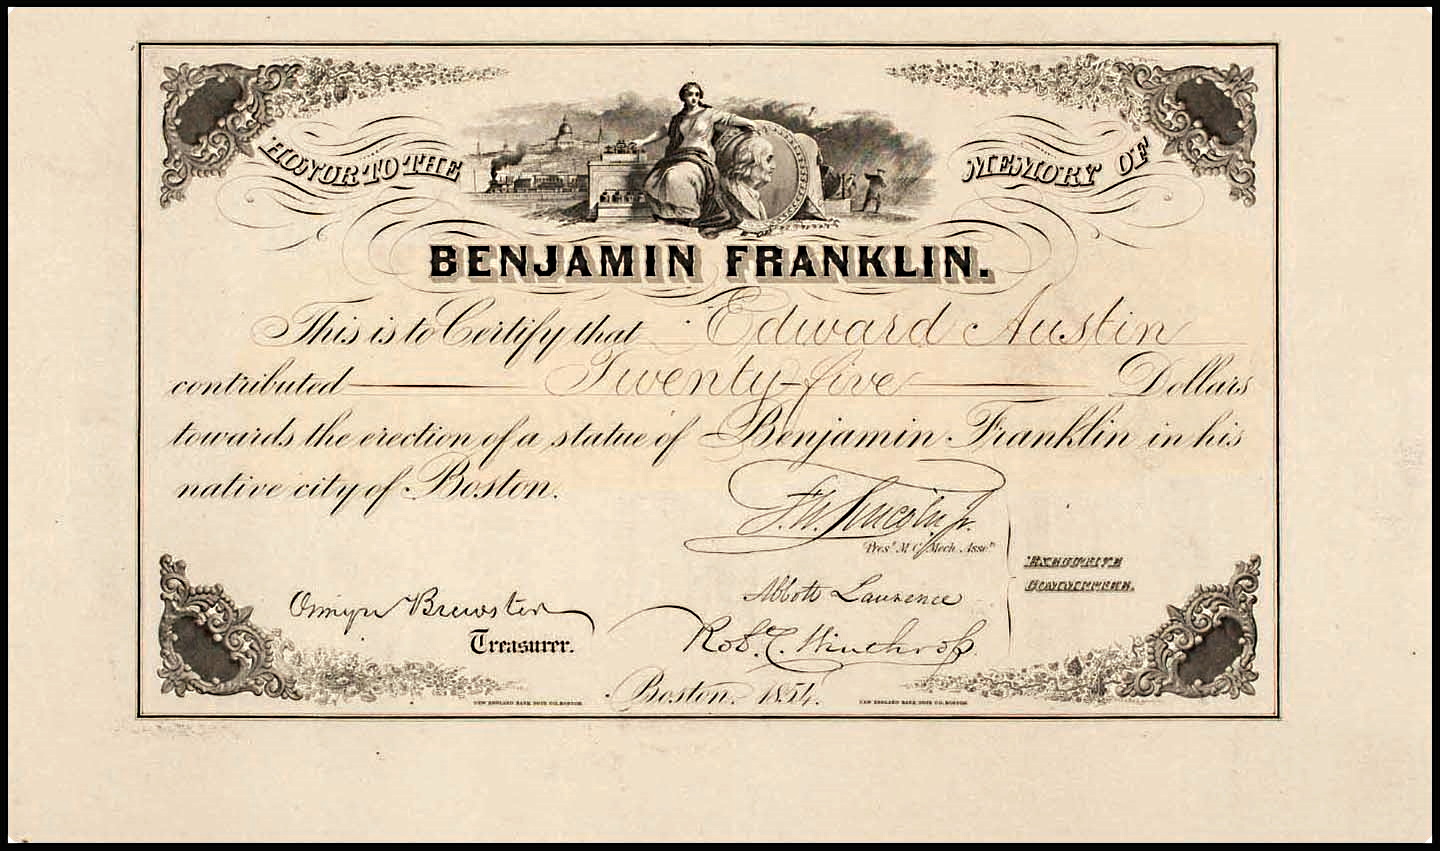 HONOR TO THE MEMORY OF
BENJAMIN FRANKLIN.
This is to Certify that Edward Austin
contributed Twenty-five Dollars
towards the erection of a statue of Benjamin Franklin in his
native city of Boston.
F. W. Lincoln Jr.
Prest. M. C. Mech. Asson.
EXECUTIVE
COMMITTEE.
Abbott Lawrence
Osmyn Brewster
Treasurer.
Robt. C. Winthrop
Boston, 1854.
NEW ENGLAND BANK NOTE CO. BOSTON
NEW ENGLAND BANK NOTE CO. BOSTON